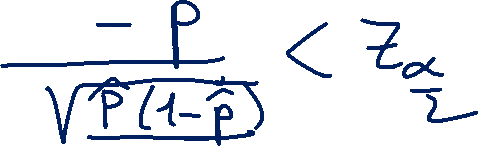 \frac{-p}{\sqrt{\hat{p}(1-\hat{p})}} < z_{\frac{\alpha}{2}}